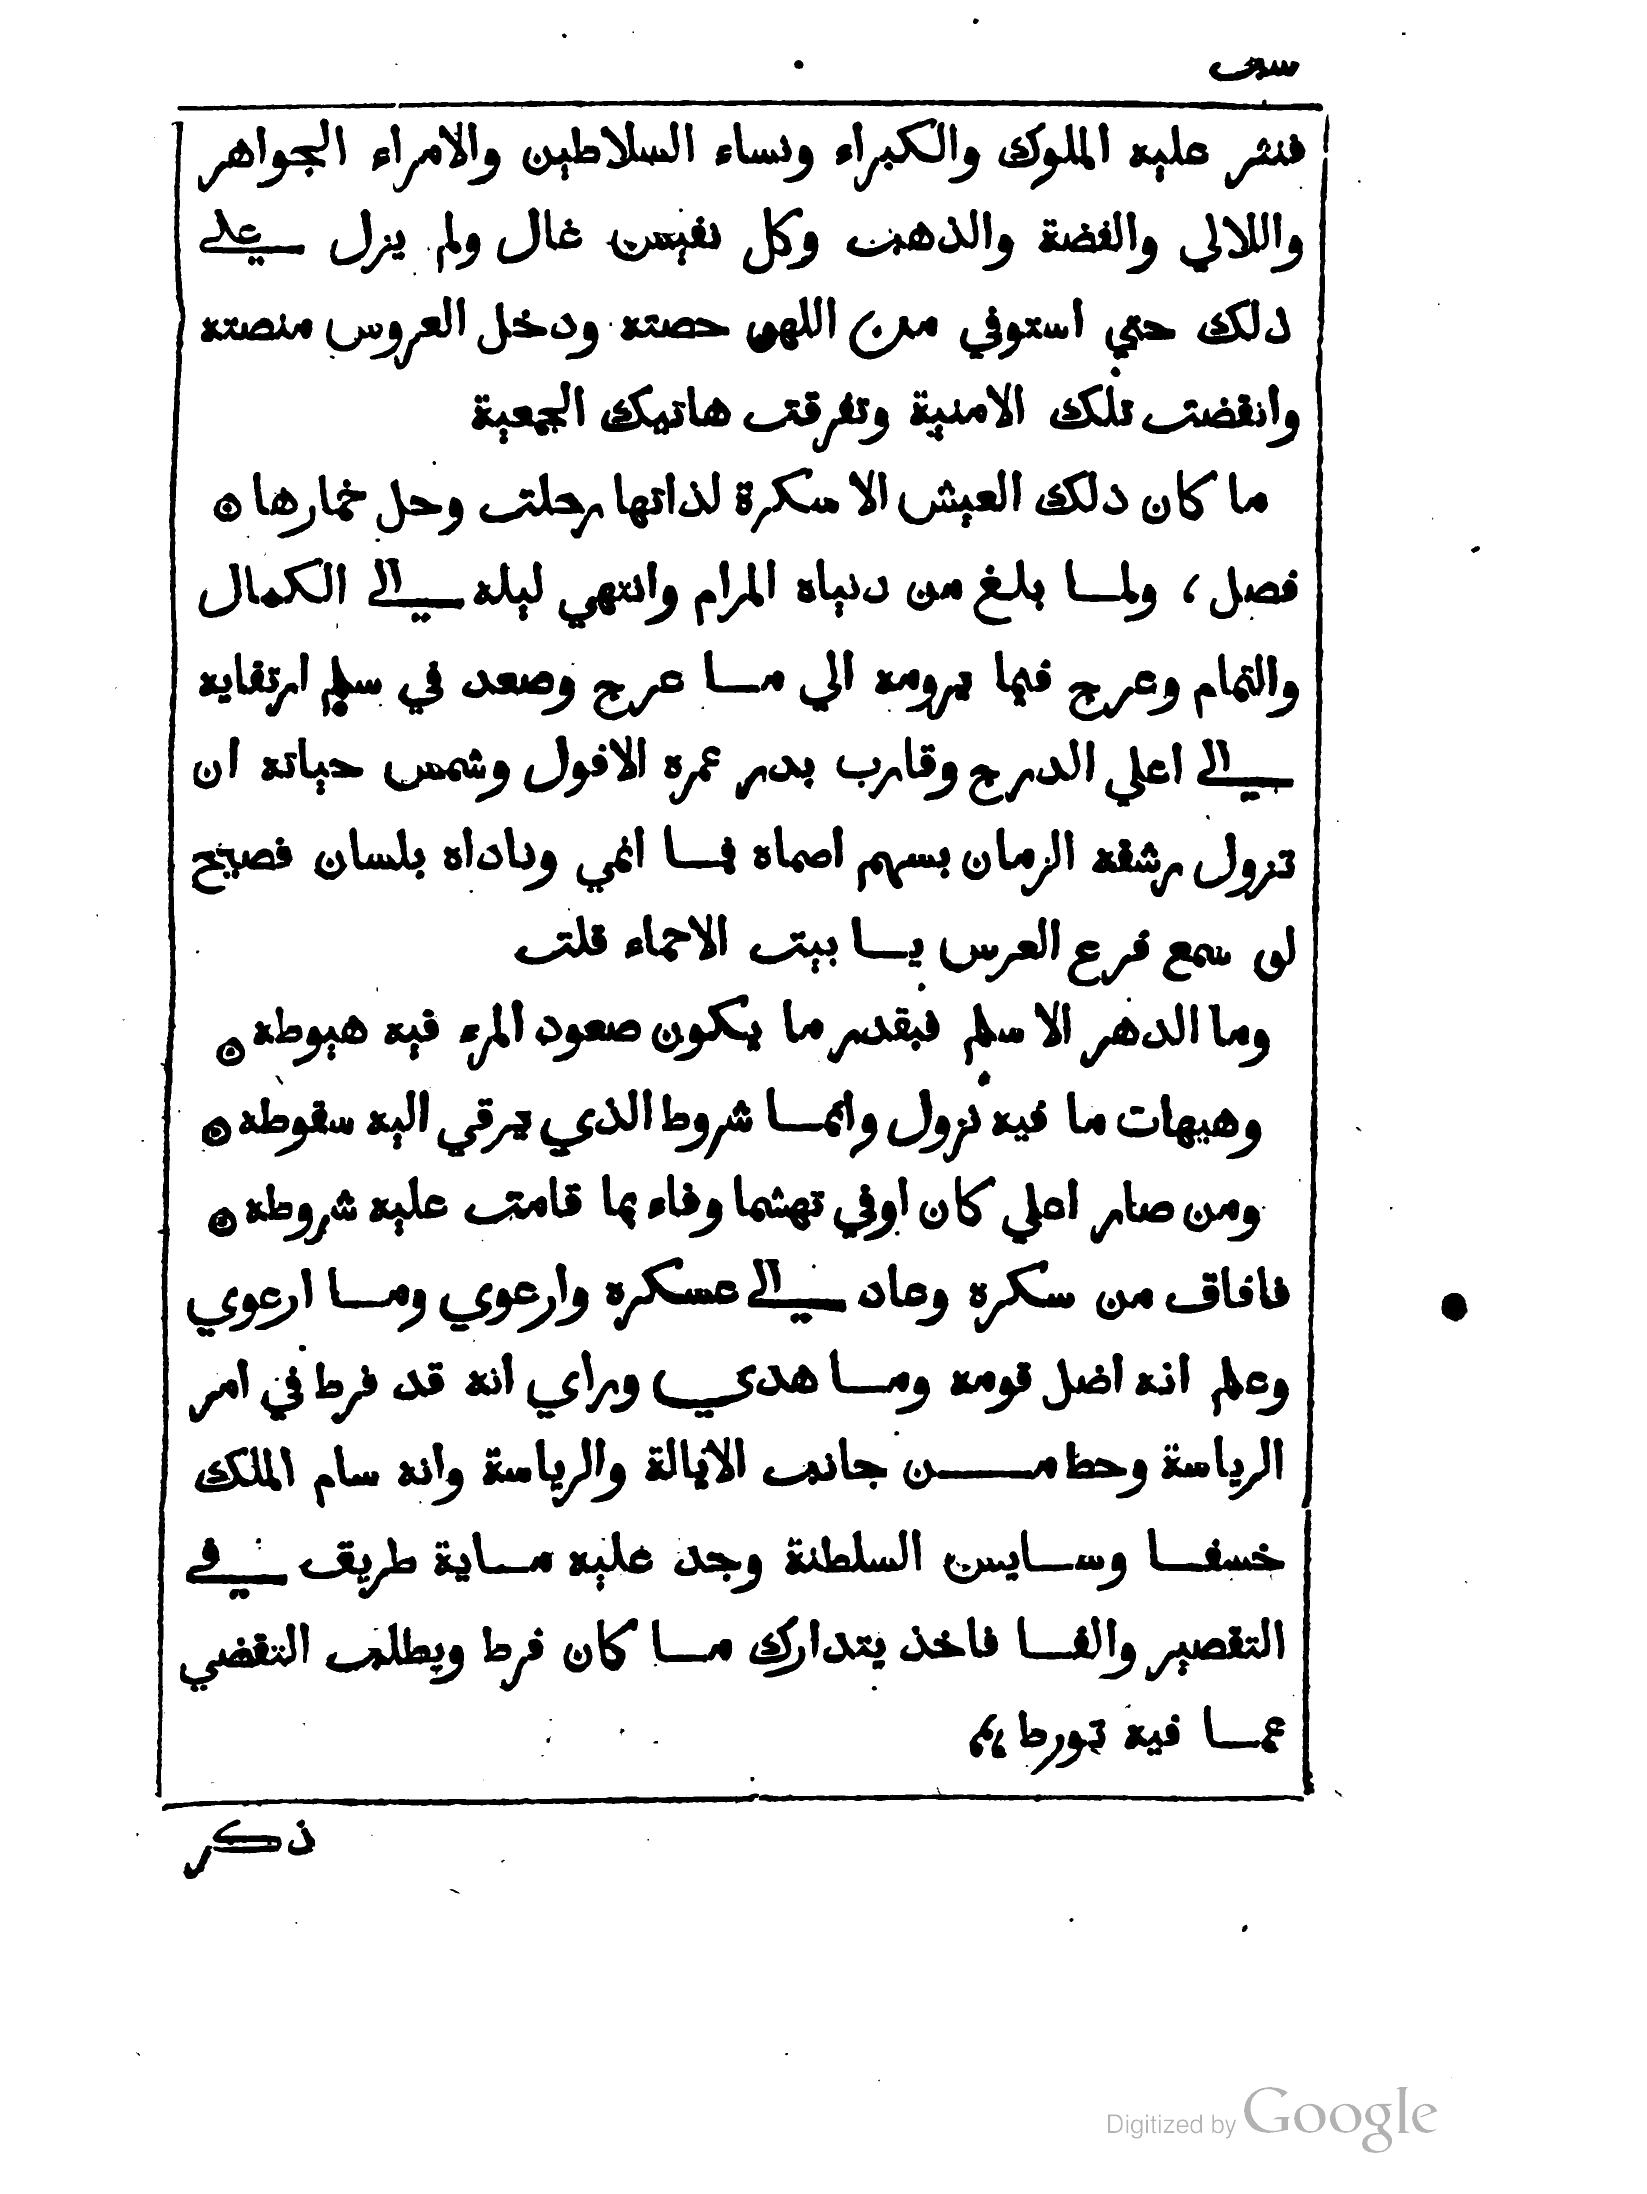 فنثر عليه الملوك والكبراء ونساء السلاطين والامراء الجواهر
واللالي والفضة والذهب وكل نفيس غال ولم يزل علي
ذلك حتي استوفي من اللهو حصته ودخل العروس منصته
وانقضت تلك الامنية وتفرقت هاتيك الجمعية
ما كان ذلك العيش الا سكرة لذاتها رحلت وحل خمارها ۞
فصل، ولما بلغ من دنياه المرام وانتهي ليله الي الكمال
والتمام وعرج فيما يرومه الي ما عرج وصعد في سلم ارتقايه
الي اعلي الدرج وقارب بدر عمره الافول وشمس حياته ان
تزول رشقه الزمان بسهم اصماه فما انمي وناداه بلسان فصيح
لو سمع فرع العرس يا بيت الاحماء قلت
وما الدهر الا سلم فبقدر ما يكون صعود المرء فيه هبوطه ۞
وهيهات ما فيه نزول وانما شروط الذي يرقي اليه سقوطه ۞
ومن صار اعلي كان اوفي تهشما وفاء بما قامت عليه شروطه ۞
فافاق من سكره وعاد الي عسكره وارعوي وما ارعوي
وعلم انه اضل قومه وما هدي وراي انه قد فرط في امر
الرياسة وحط من جانب الايالة والرياسة وانه سام الملك
خسفا وسايس السلطنة وجد عليه ماية طريق في
التقصير والفا فاخذ يتدارك ما كان فرط ويطلب التقضي
عما فيه تورط
ذكر
Digitized by Google